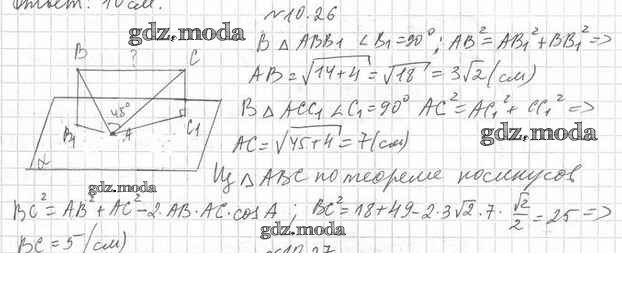 Ответ: 10 см.
№10.26
gdz.moda
В △ ABB₁ ∠B₁=90°; AB²=AB₁²+BB₁² =>
B ? C
AB=√14+4=√18=3√2 (см)
В △ ACC₁ ∠C₁=90° AC²=AC₁²+CC₁² =>
45°
B₁ A C₁
AC=√45+4=7(см)
gdz.moda
α
Из △ABC по теореме косинусов
gdz.moda
BC²=AB²+AC²-2·AB·AC·cosA; BC²=18+49-2·3√2·7·√2/2=25 =>
gdz.moda
BC=5 (см)
№10.27